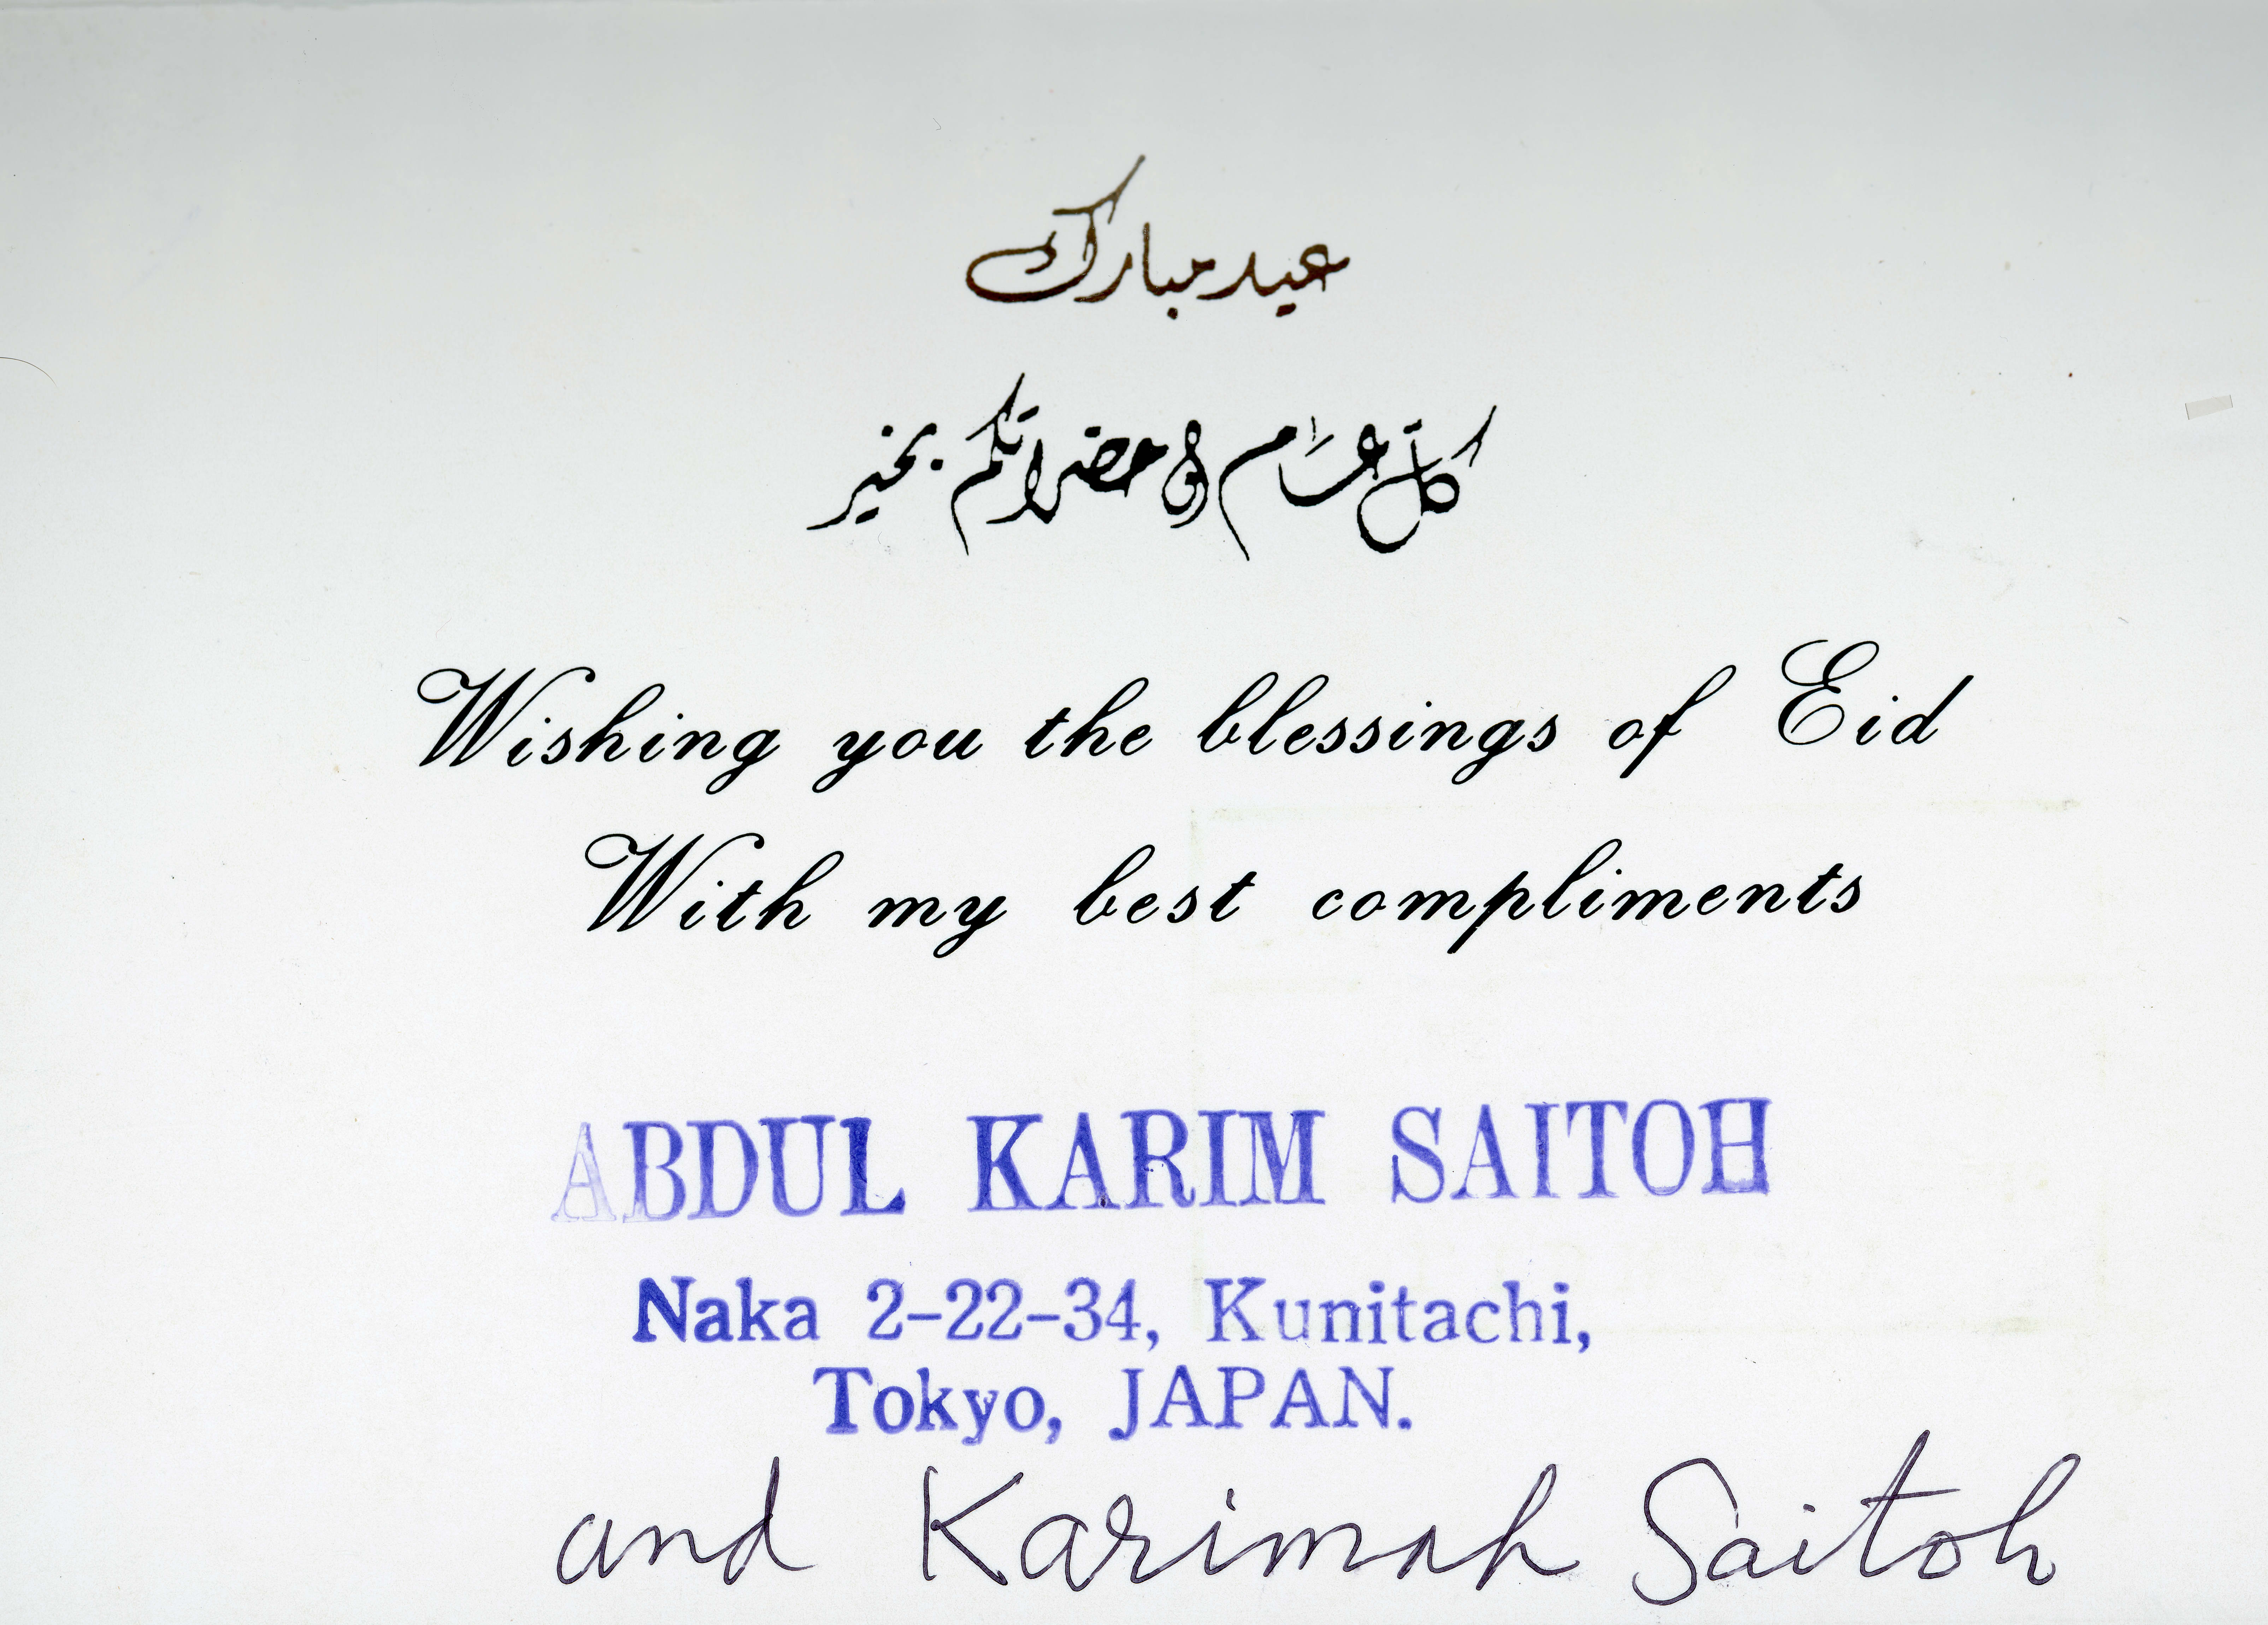 عيد مبارك
كل عام وحضراتكم بخير
Wishing you the blessings of Eid
With my best compliments
ABDUL KARIM SAITOH
Naka 2-22-34, Kunitachi,
Tokyo, JAPAN.
and Karimah Saitoh